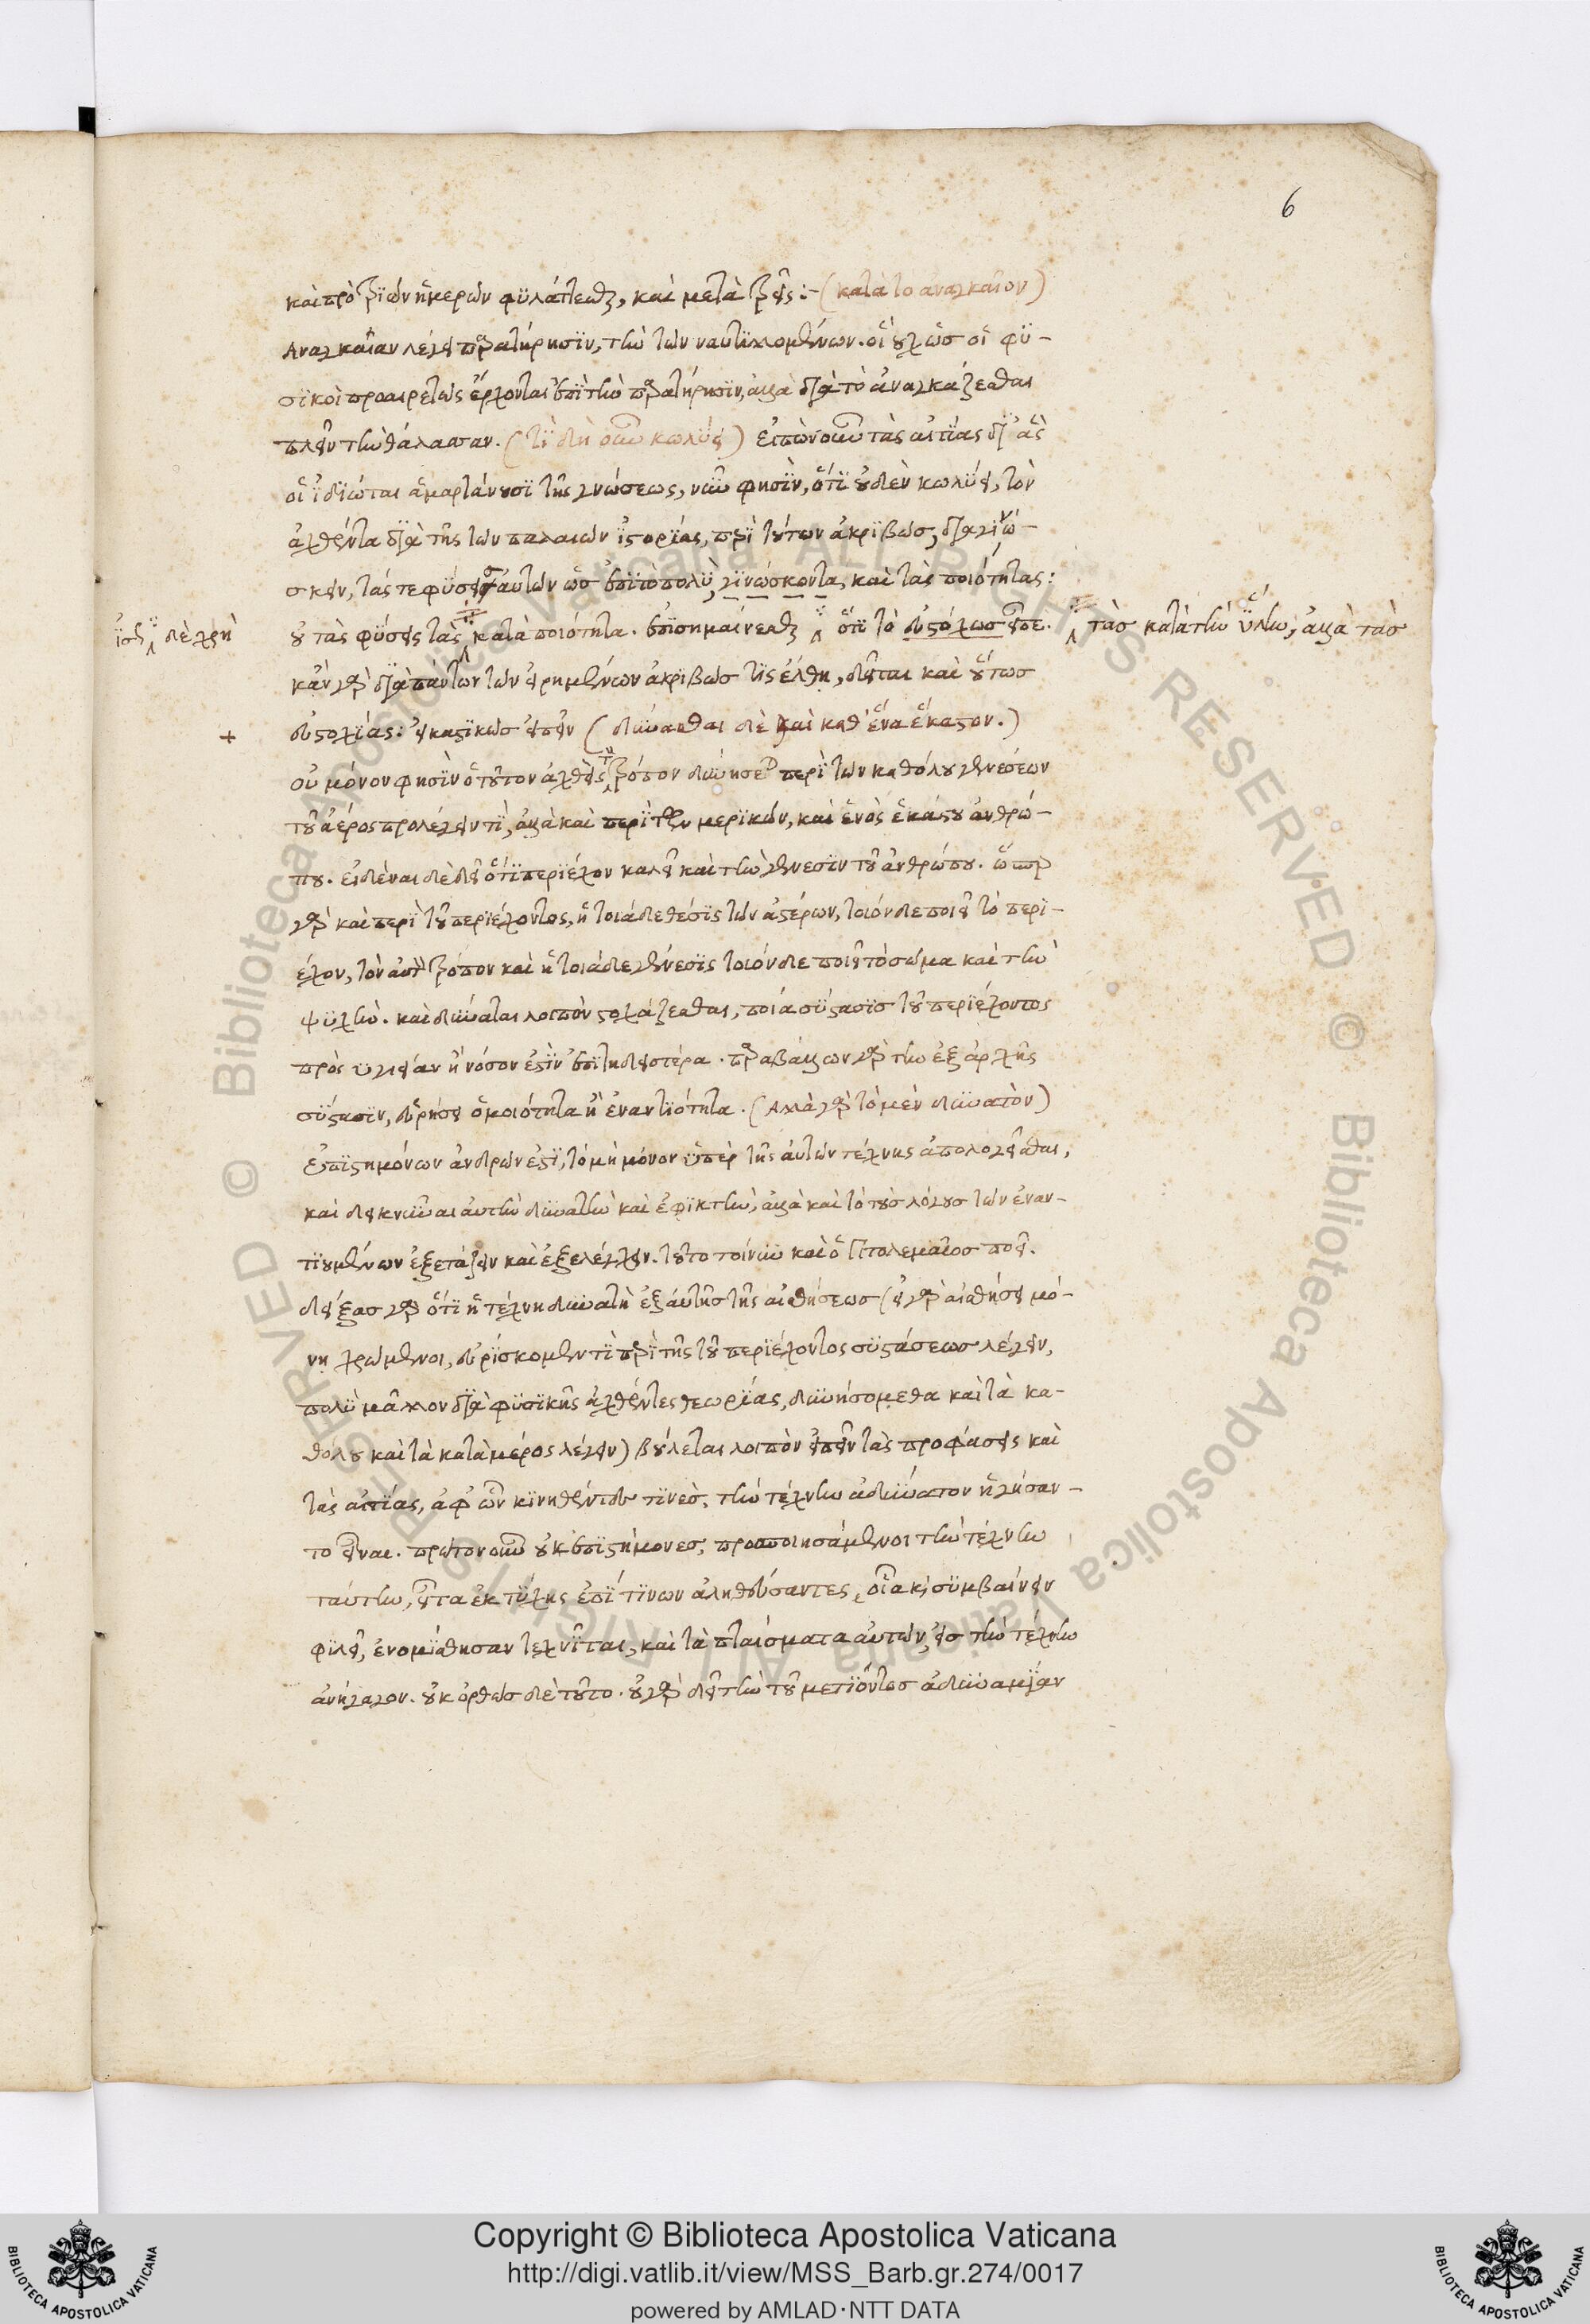 6
καὶ πρὸ τριῶν ἡμερῶν φυλάττεσθαι, καὶ μετὰ τρεῖς :- (κατὰ τὸ ἀναγκαῖον)
Ἀναγκαίαν λέγει παρατήρησιν, τὴν τῶν ναυτιλλομένων. οἳ οὐχ ὡς οἱ φυ-
σικοὶ προαιρετῶς ἔρχονται ἐπὶ τὴν παρατήρησιν, ἀλλὰ διὰ τὸ ἀναγκάζεσθαι
πλεῖν τὴν θάλασσαν. (τί δὴ οὖν κωλύει) εἰπὼν οὖν τὰς αἰτίας δι' ἃς
οἱ ἰδιῶται ἁμαρτάνουσι τῆς γνώσεως, νῦν φησὶν, ὅτι οὐδὲν κωλύει, τὸν
ἀχθέντα διὰ τῆς τῶν παλαιῶν ἱστορίας, περὶ τούτων ἀκριβῶς, διαγινώ-
σκειν, τάς τε φύσεις αὐτῶν ὡς ἐπὶ τὸ πολὺ, γινώσκοντα, καὶ τὰς ποιότητας:
οὐ τὰς φύσεις τὰς κατὰ ποιότητα. ἐπισημαίνεσθαι ὅτι τὸ εὐστόχως εἶπε.
τὰς κατὰ τὴν ὕλην, ἀλλὰ τὰς
δὲ χρὴ
κἂν γὰρ διὰ πάντων τῶν εἰρημένων ἀκριβῶς τις ἔλθῃ, δεῖται καὶ οὕτως
+ εὐστοχίας: εἰκαστικῶς εἰπεῖν (δύνασθαι δὲ καὶ καθ' ἕνα ἕκαστον.)
οὐ μόνον φησὶν ὁ τοῦτον ἀχθεὶς τρόπον δυνήσεται περὶ τῶν καθόλου γενέσεων
τοῦ ἀέρος προλέγειν τι, ἀλλὰ καὶ περὶ τῶν μερικῶν, καὶ ἑνὸς ἑκάστου ἀνθρώ-
που. εἰδέναι δὲ δεῖ ὅτι περιέχον καλεῖ καὶ τὴν γένεσιν τοῦ ἀνθρώπου. ὥσπερ
γὰρ καὶ περὶ τοῦ περιέχοντος, ἡ τοιάδε θέσις τῶν ἀστέρων, τοιόνδε ποιεῖ τὸ περι-
έχον, τὸν αὐτὸν τρόπον καὶ ἡ τοιάδε γένεσις τοιόνδε ποιεῖ τὸ σῶμα καὶ τὴν
ψυχήν. καὶ δύναται λοιπὸν στοχάζεσθαι, ποία σύστασις τοῦ περιέχοντος
πρὸς ὑγιείαν ἢ νόσον ἐστὶν ἐπιτηδειοτέρα. παραβάλλων γὰρ τὴν ἐξ ἀρχῆς
σύστασιν, εὑρήσει ὁμοιότητα ἢ ἐναντιότητα. (Ἀλλὰ γὰρ τὸ μὲν δυνατὸν)
ἐπιστημόνων ἀνδρῶν ἐστὶ, τὸ μὴ μόνον ὑπὲρ τῆς αὐτῶν τέχνης ἀπολογεῖσθαι,
καὶ δεικνύναι αὐτὴν δυνατὴν καὶ ἐφικτὴν, ἀλλὰ καὶ τὸ τοὺς λόγους τῶν ἐναν-
τιουμένων ἐξετάζειν καὶ ἐξελέγχειν. τοῦτο τοίνυν καὶ ὁ Πτολεμαῖος ποιεῖ.
δείξας γὰρ ὅτι ἡ τέχνη δυνατὴ ἐξ αὐτῆς τῆς αἰσθήσεως (εἰ γὰρ αἰσθήσει μό-
νῃ χρώμενοι, εὑρίσκομέν τι περὶ τῆς τοῦ περιέχοντος συστάσεως λέγειν,
πολὺ μᾶλλον διὰ φυσικῆς ἀχθέντες θεωρίας, δυνησόμεθα καὶ τὰ κα-
θόλου καὶ τὰ κατὰ μέρος λέγειν) βούλεται λοιπὸν εἰπεῖν τὰς προφάσεις καὶ
τὰς αἰτίας, ἀφ' ὧν κινηθέντες τινὲς, τὴν τέχνην ἀδύνατον ἡγήσαν-
το εἶναι. πρῶτον οὖν οὐκ ἐπιστήμονες, προσποιησάμενοι τὴν τέχνην
ταύτην, εἶτα ἐκ τύχης ἐπί τινων ἀληθεύσαντες, οἷα καὶ συμβαίνειν
φιλεῖ, ἐνομίσθησαν τεχνῖται, καὶ τὰ πταίσματα αὐτῶν, εἰς τὴν τέχνην
ἀνήγαγον. οὐκ ὀρθῶς δὲ τοῦτο. οὐ γὰρ δεῖ τὴν τοῦ μετιόντος ἀδυναμίαν
© Biblioteca Apostolica Vaticana ALL RIGHTS RESERVED
Copyright © Biblioteca Apostolica Vaticana
http://digi.vatlib.it/view/MSS_Barb.gr.274/0017
powered by AMLAD·NTT DATA
BIBLIOTECA APOSTOLICA VATICANA
BIBLIOTECA APOSTOLICA VATICANA